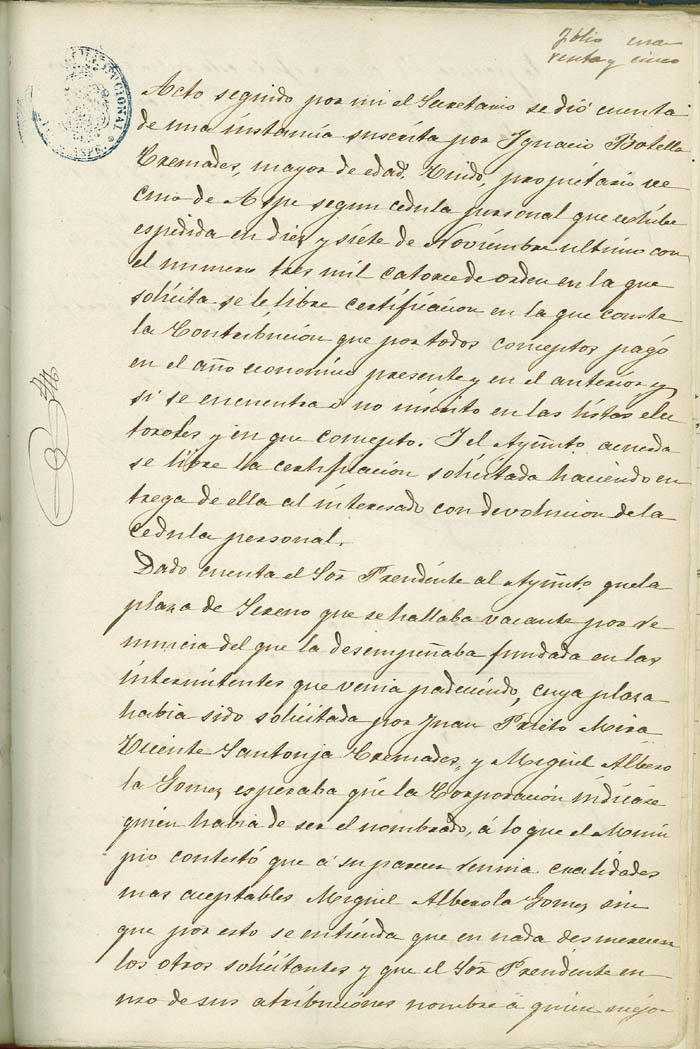 Folio cua
renta y cinco
Acto seguido por mi el Secretario se dió cuenta
de una instancia suscrita por Ignacio Botella
Cremades, mayor de edad, Viudo, propietario ve
cino de Aspe segun cedula personal que exhibe
espedida en diez y siete de Noviembre ultimo con
el numero tres mil catorce de orden en la que
solicita se le libre certificacion en la que conste
la Contribucion que por todos conceptos pagó
en el año economico presente y en el anterior y
si se encuentra ó no inscrito en las listas elec
torales y en que concepto. I el Ayũnto. acuerda
se libre la certificacion solicitada haciendo en
trega de ella al interesado con devolucion de la
cedula personal.
Dado cuenta el Sor. Presidente al Ayũnto. que la
plaza de Sereno que se hallaba vacante por re
nuncia del que la desempeñaba fundada en las
intermitentes que venia padeciendo, cuya plaza
habia sido solicitada por Juan Prieto Mira
Vicente Santonja Cremades, y Miguel Albero
la Gomez esperaba que la Corporacion indicase
quien habia de ser el nombrado, á lo que el Munici
pio contestó que á su parecer reunia cualidades
mas aceptables Miguel Alberola Gomez sin
que por esto se entienda que en nada desmerecen
los otros solicitantes y que el Sor. Presidente en
uso de sus atribuciones nombre á quien mejor